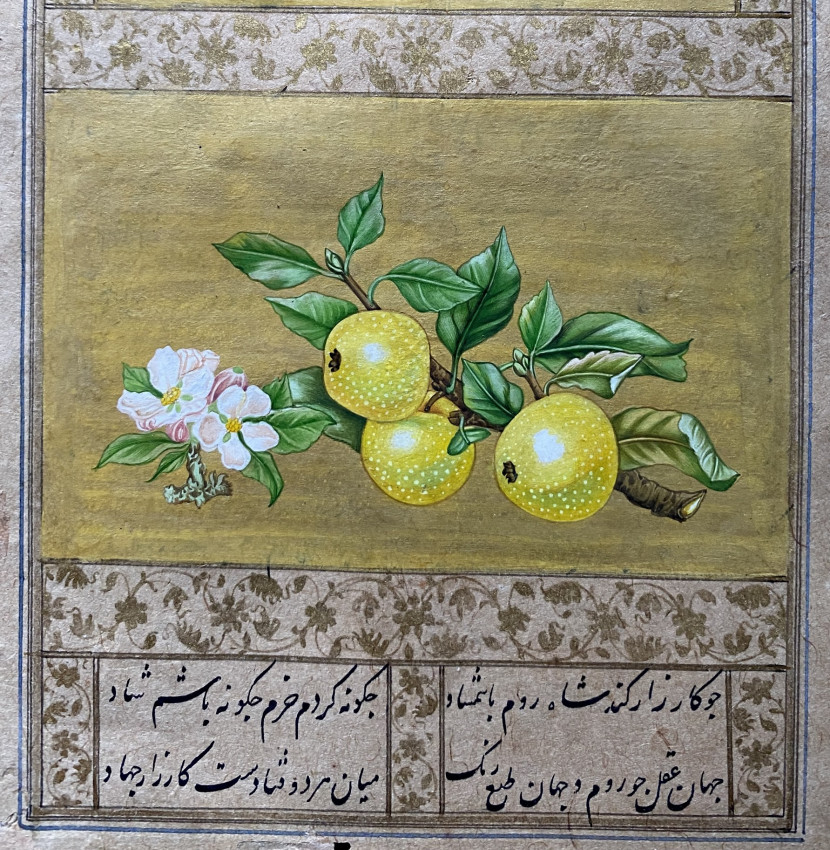 جو کارزار کند شاه روم باشمشاد
جکونه کردم خرم جکونه باشم شاد
جهان عقل جو روم و جهان طبع رنک
میان هر دو فتادست کارزار جهاد